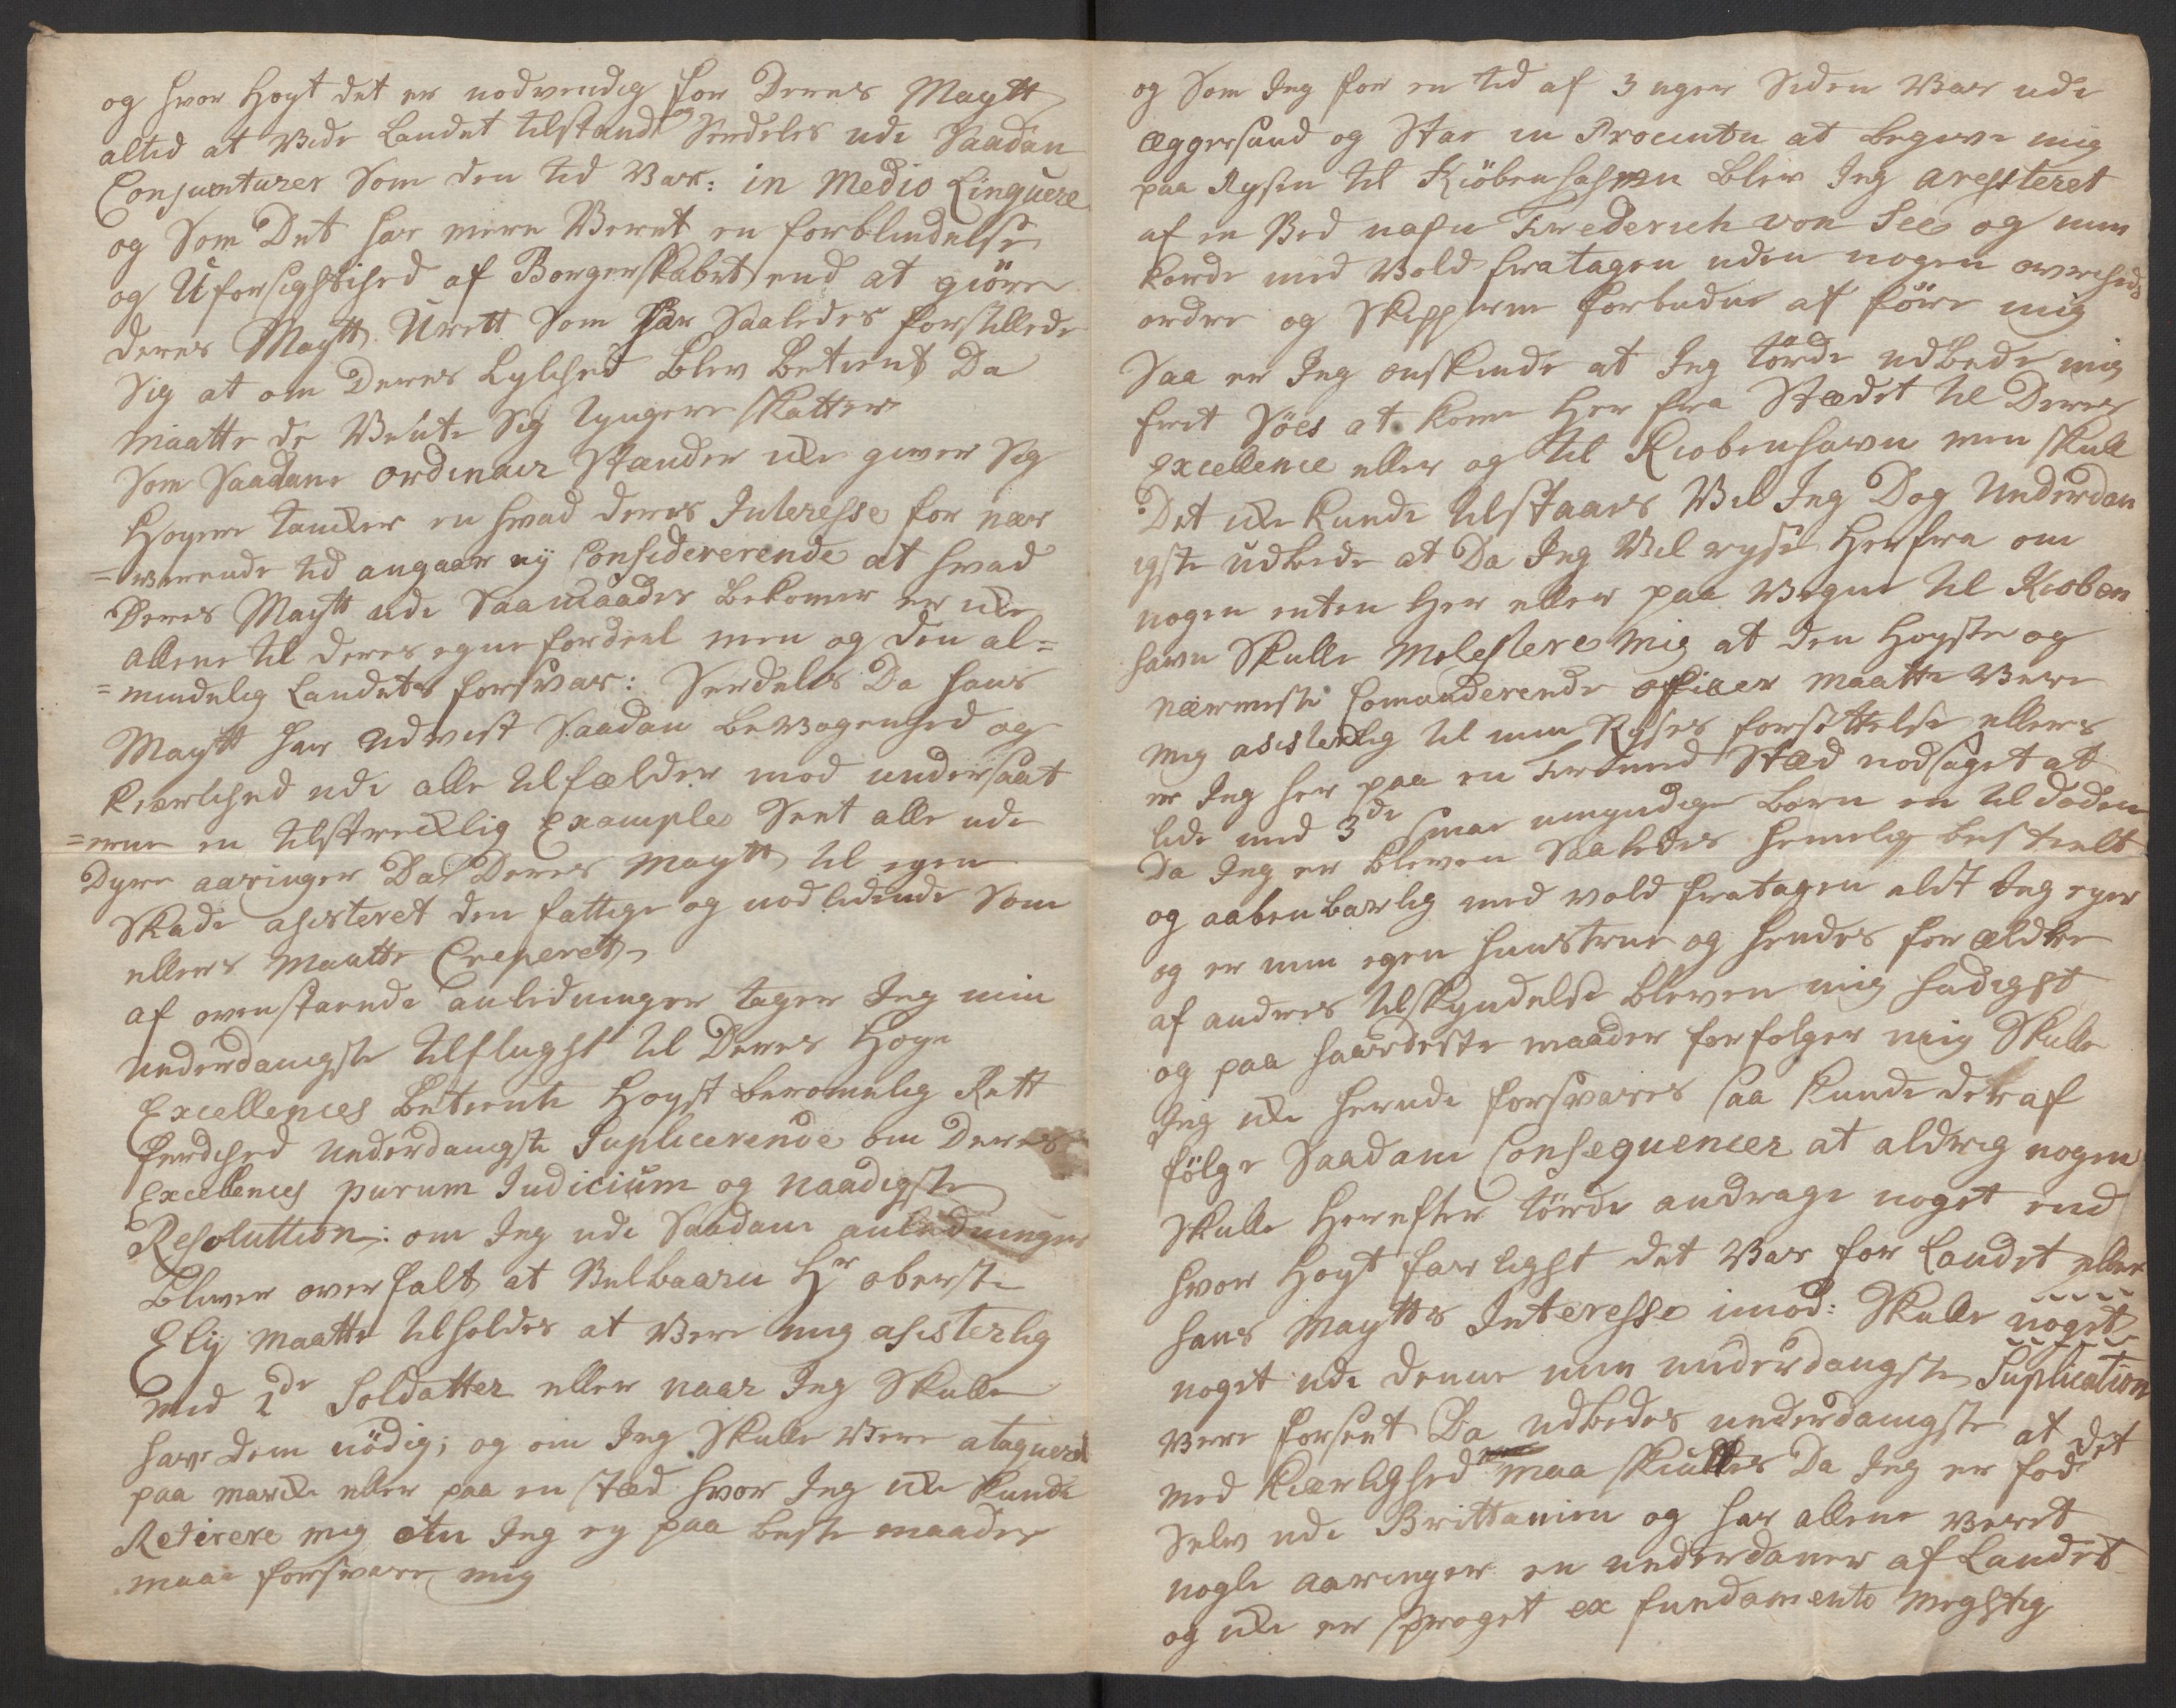 og hvor Høyt det er nodvendig for Deres Maytt
altid at Vide Landet tilstand og Serdeles udi Saadan
Conjuncturer Som den tid Var: in Medio Linquere
og Som Det har mere Veret en forblindelse
og Uforsightihed af Borgerskabet end at giöre
deres Maytt Urett Som har Saaledes forstillede
Sig at om Deres Lylihed blev betient Da
maatte de Vente Sig tyngere skatter
Som Saadane ordinair Stander icke giver Sig
Hoyere tancker en hvad deres Interesse for nær
=werende tid angaar ey Considererende at hvad
Deres Maytt udi Saamaader bekomer er icke
allene til deres egne fordeel men og den al=
=mindelig Landets forsvar: Serdeles Da hans
Maytt har udvist Saadan bevogenhed og
kierlihed udi alle tilfælder mod undersaat
=erne en tilstreckelig Example Sent alle udi
Dyre aaringer Da Deres Maytt til egen
Skade asisteret den fattige og nodlidende Som
ellers Maatte Creperet
af ovenstaende anledninger tager Jeg min
underdanigste tilflught til Deres Hoye
Excellences betiente Hoyst beromelig Rett
ferdihed underdanigste Suplicerende om Deres
Excellences purum Iudicium og naadigste
Resoluttion: om Jeg udi Saadane anledninger
bliver overfalt at Velbaarn Hr oberste
Ely maatte tilholdes at Vere mig asisterlig
med 2de Soldatter eller naar Jeg Skulle
have dem nödig; og om Jeg Skulle Vere ataqueret
paa marcke eller paa en stæd hvor Jeg icke kunde
Retirere mig om Jeg ey paa beste maader
maae forsvare mig
og Som Jeg for en tid af 3 uger Siden Var udi
Æggersund og Stae in Procintu at begive mig
paa Reysen til Kiöbenhafn blev Jeg aresteret
af en Ved nafn Frederich von See og min
korde med Vold fratagen uden nogen overheds
ordre og Skipperne forbuden at före mig
Saa er Jeg onskende at Jeg törde udbede mig
frit Söes at kome Her fra Stædet til Deres
Excellence eller og til Kiobenhavn men skull
Det icke kunde tilstaaes Vil Jeg Dog Underdan
igste udbede at Da Jeg Vil reyse Herfra om
nogen enten her eller paa Veyene til Kioben
havn Skulle Molestere Mig at den Hoyste og
Nærmeste Comanderende officer maatte Vere
mig asisterlig til min Reyses forsettelse ellers
er Jeg her paa en fremmed Stæd nodsaget at
lide med 3de smae umyndige born en til doden
Da Jeg er bleven Saaledes hemelig bestielt
og aabenbarlig med vold fratagen aldt Jeg eyer
og er min egen hunstrue og hendes forældre
af andres tilskyndelse bleven mig hadigst
og paa haardeste maader forfolger mig Skulle
Jeg icke herudi forsvares saa kunde deraf
fölge Saadane Consequencer at aldrig nogen
Skulle Herefter törde andrage noget end
hvor Hoyt farlight det Var for Landet eller
hans Maytts Interesse imod: Skulle noget
noget udi denne min underdanigste Suplication
Vere forsent Da udbedes underdanigste at det
med kiærlighed maa skiulles Da Jeg er fod
Selv udi Brittanien og har allene veret
nogle aaringer en underdaner af Landet
og icke er sproget ex fundamento megtig